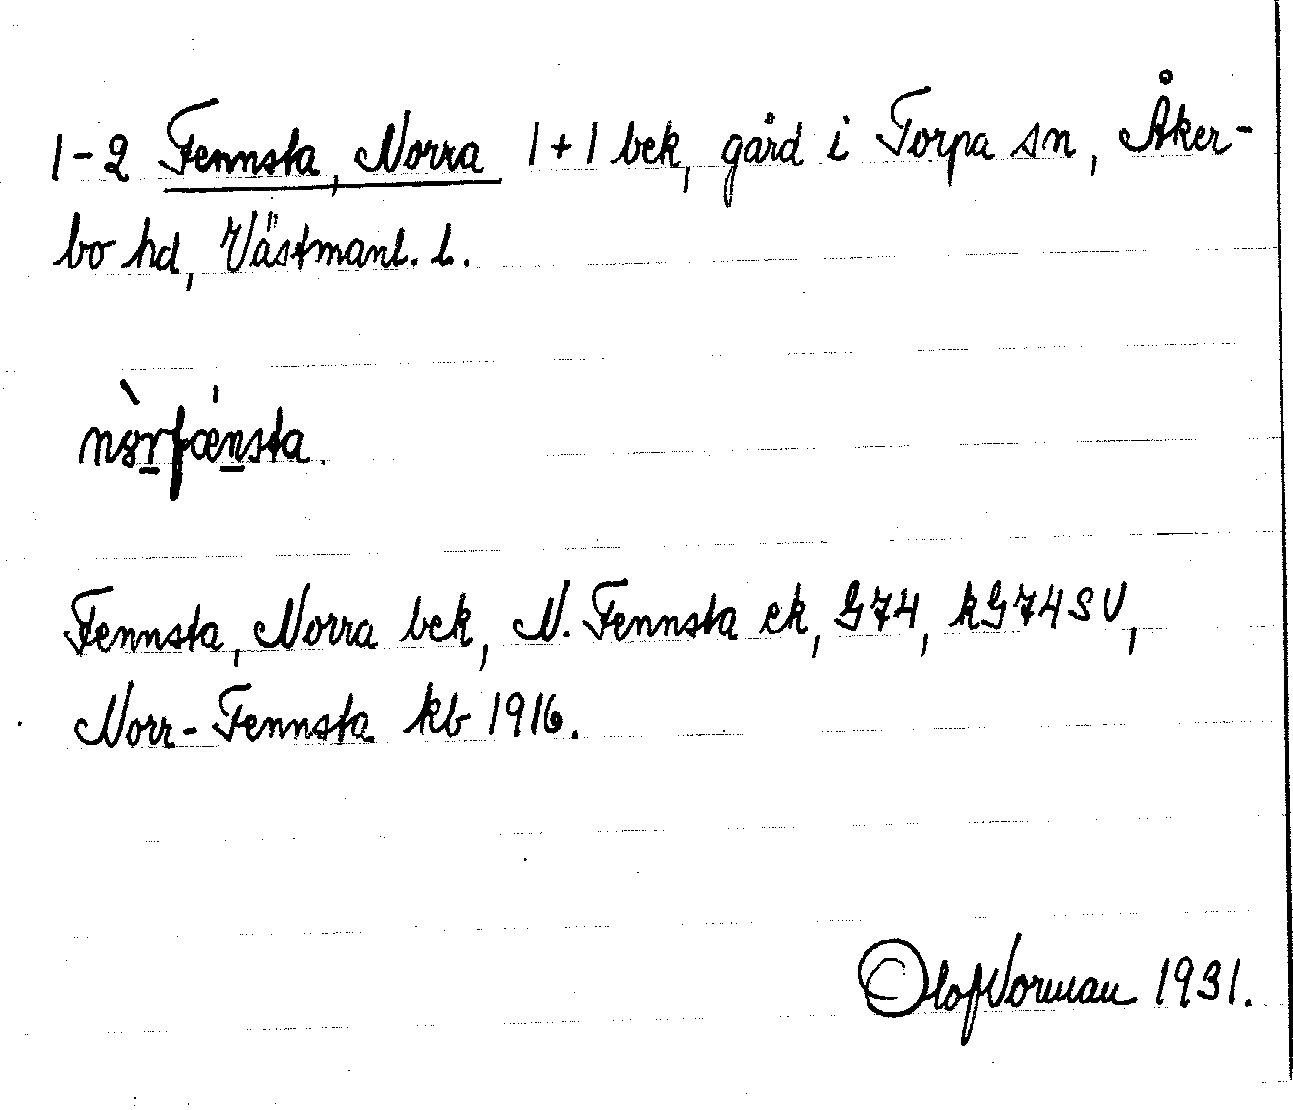 1-2 Fennsta, Norra 1+1 bek, gård i Torpa sn, Åker-
bo hd, Västmanl. l.
nòrfǽnsta.
Fennsta, Norra bek, N. Fennsta ek, G74, kG74SV,
Norr-Fennsta kb 1916.
Olof Norman 1931.